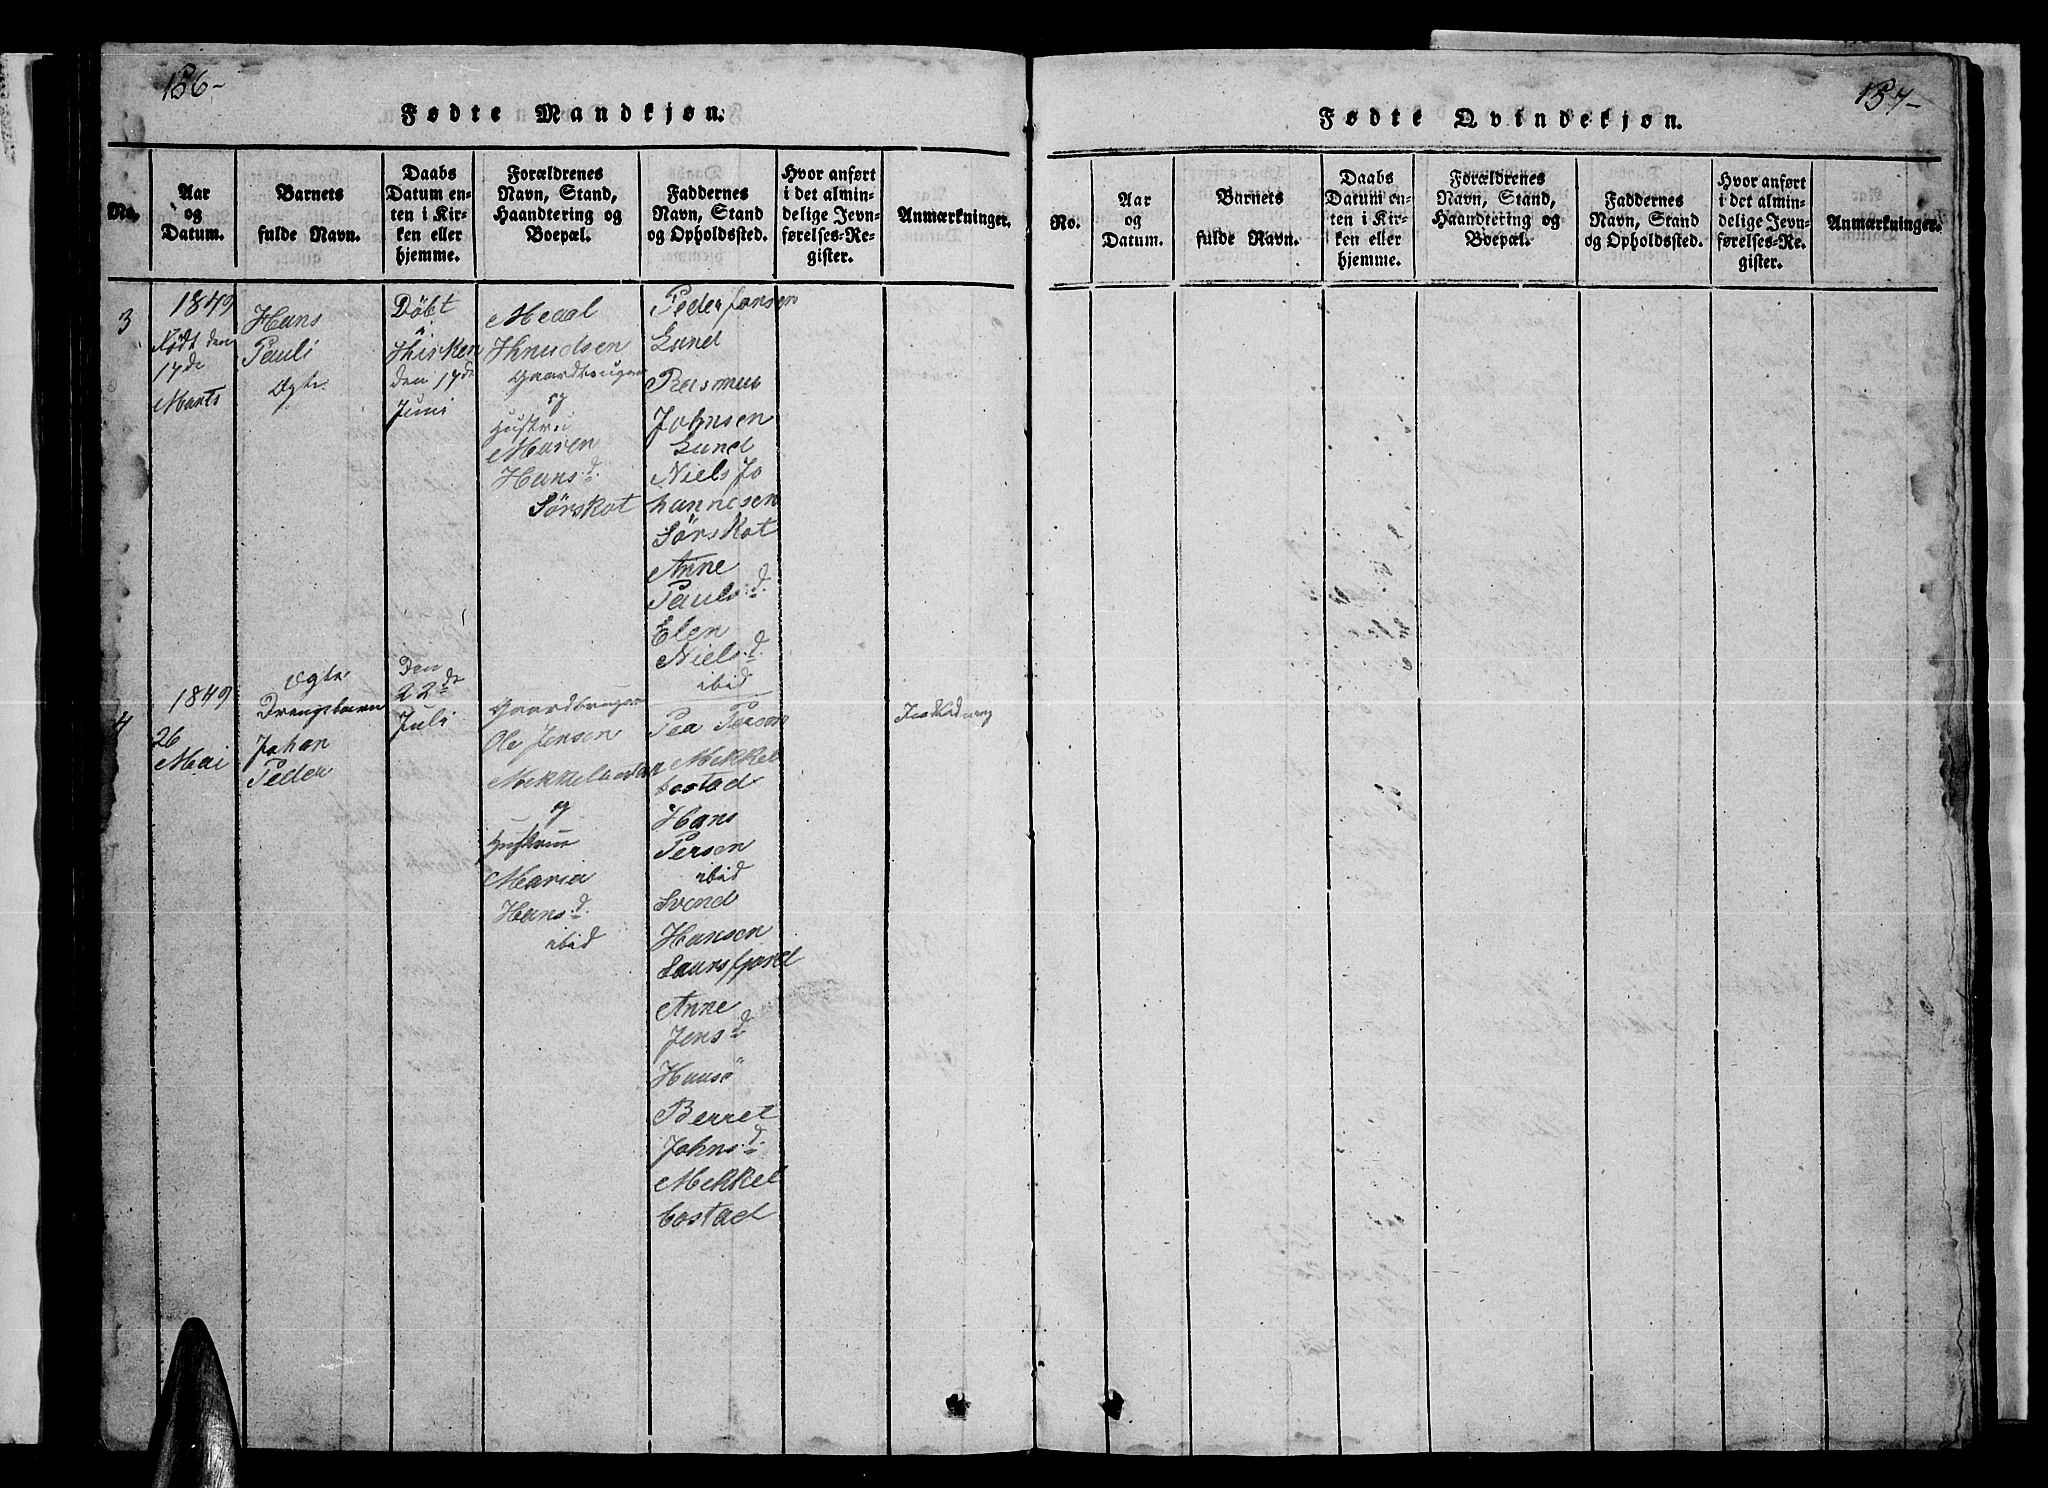 156-
Fødte Mandkjøn.
No.
Aar
og
Datum.
Barnets
fulde Navn.
Daabs
Datum en-
ten i Kir-
ken eller
hjemme.
Forældrenes
Navn, Stand,
Haandtering og
Boepæl.
Faddernes
Navn, Stand
og Opholdssted.
Hvor anført
i det almin-
delige Jevn-
førelses-Re-
gister.
Anmærkninger.
3
1849
Født den
17de
Marts
Hans
Pauli
Ægte
Döbt
i
Kirken
den 17de
Juni
Knudsen
Gaardbruger
og
Hustru
Maren
Hans.d.
Sörskot
Peder Jansen
Lund
Rasmus
Johnsen
Lund
Niels Jo
hannesen
Sörskot
Anne
Pauls.d.
Elen
Niels.d.
ibid
4
1849
26
Mai
Ægte
Drengebarn
Johan
Peder
Den
22de
Juli
Gaardbruger
Ole Jensen
Mekkelbostad
og
Hustrue
Maria
Hans.d.
ibid
Pea Person
Mekkel
bostad
Hans
Persen
ibid
Svend
Hansen
Laursfjord
Anne
Jens.d.
Hansö
Berret
Johns.d.
Mekkel
bostad
157-
Fødte Qvindekjøn.
No.
Aar
og
Datum.
Barnets
fulde Navn.
Daabs
Datum en-
ten i Kir-
ken eller
hjemme.
Forældrenes
Navn, Stand,
Haandtering og
Boepæl.
Faddernes
Navn, Stand
og Opholdssted.
Hvor anført
i det almin-
delige Jevn-
førelses-Re-
gister.
Anmærkninger.